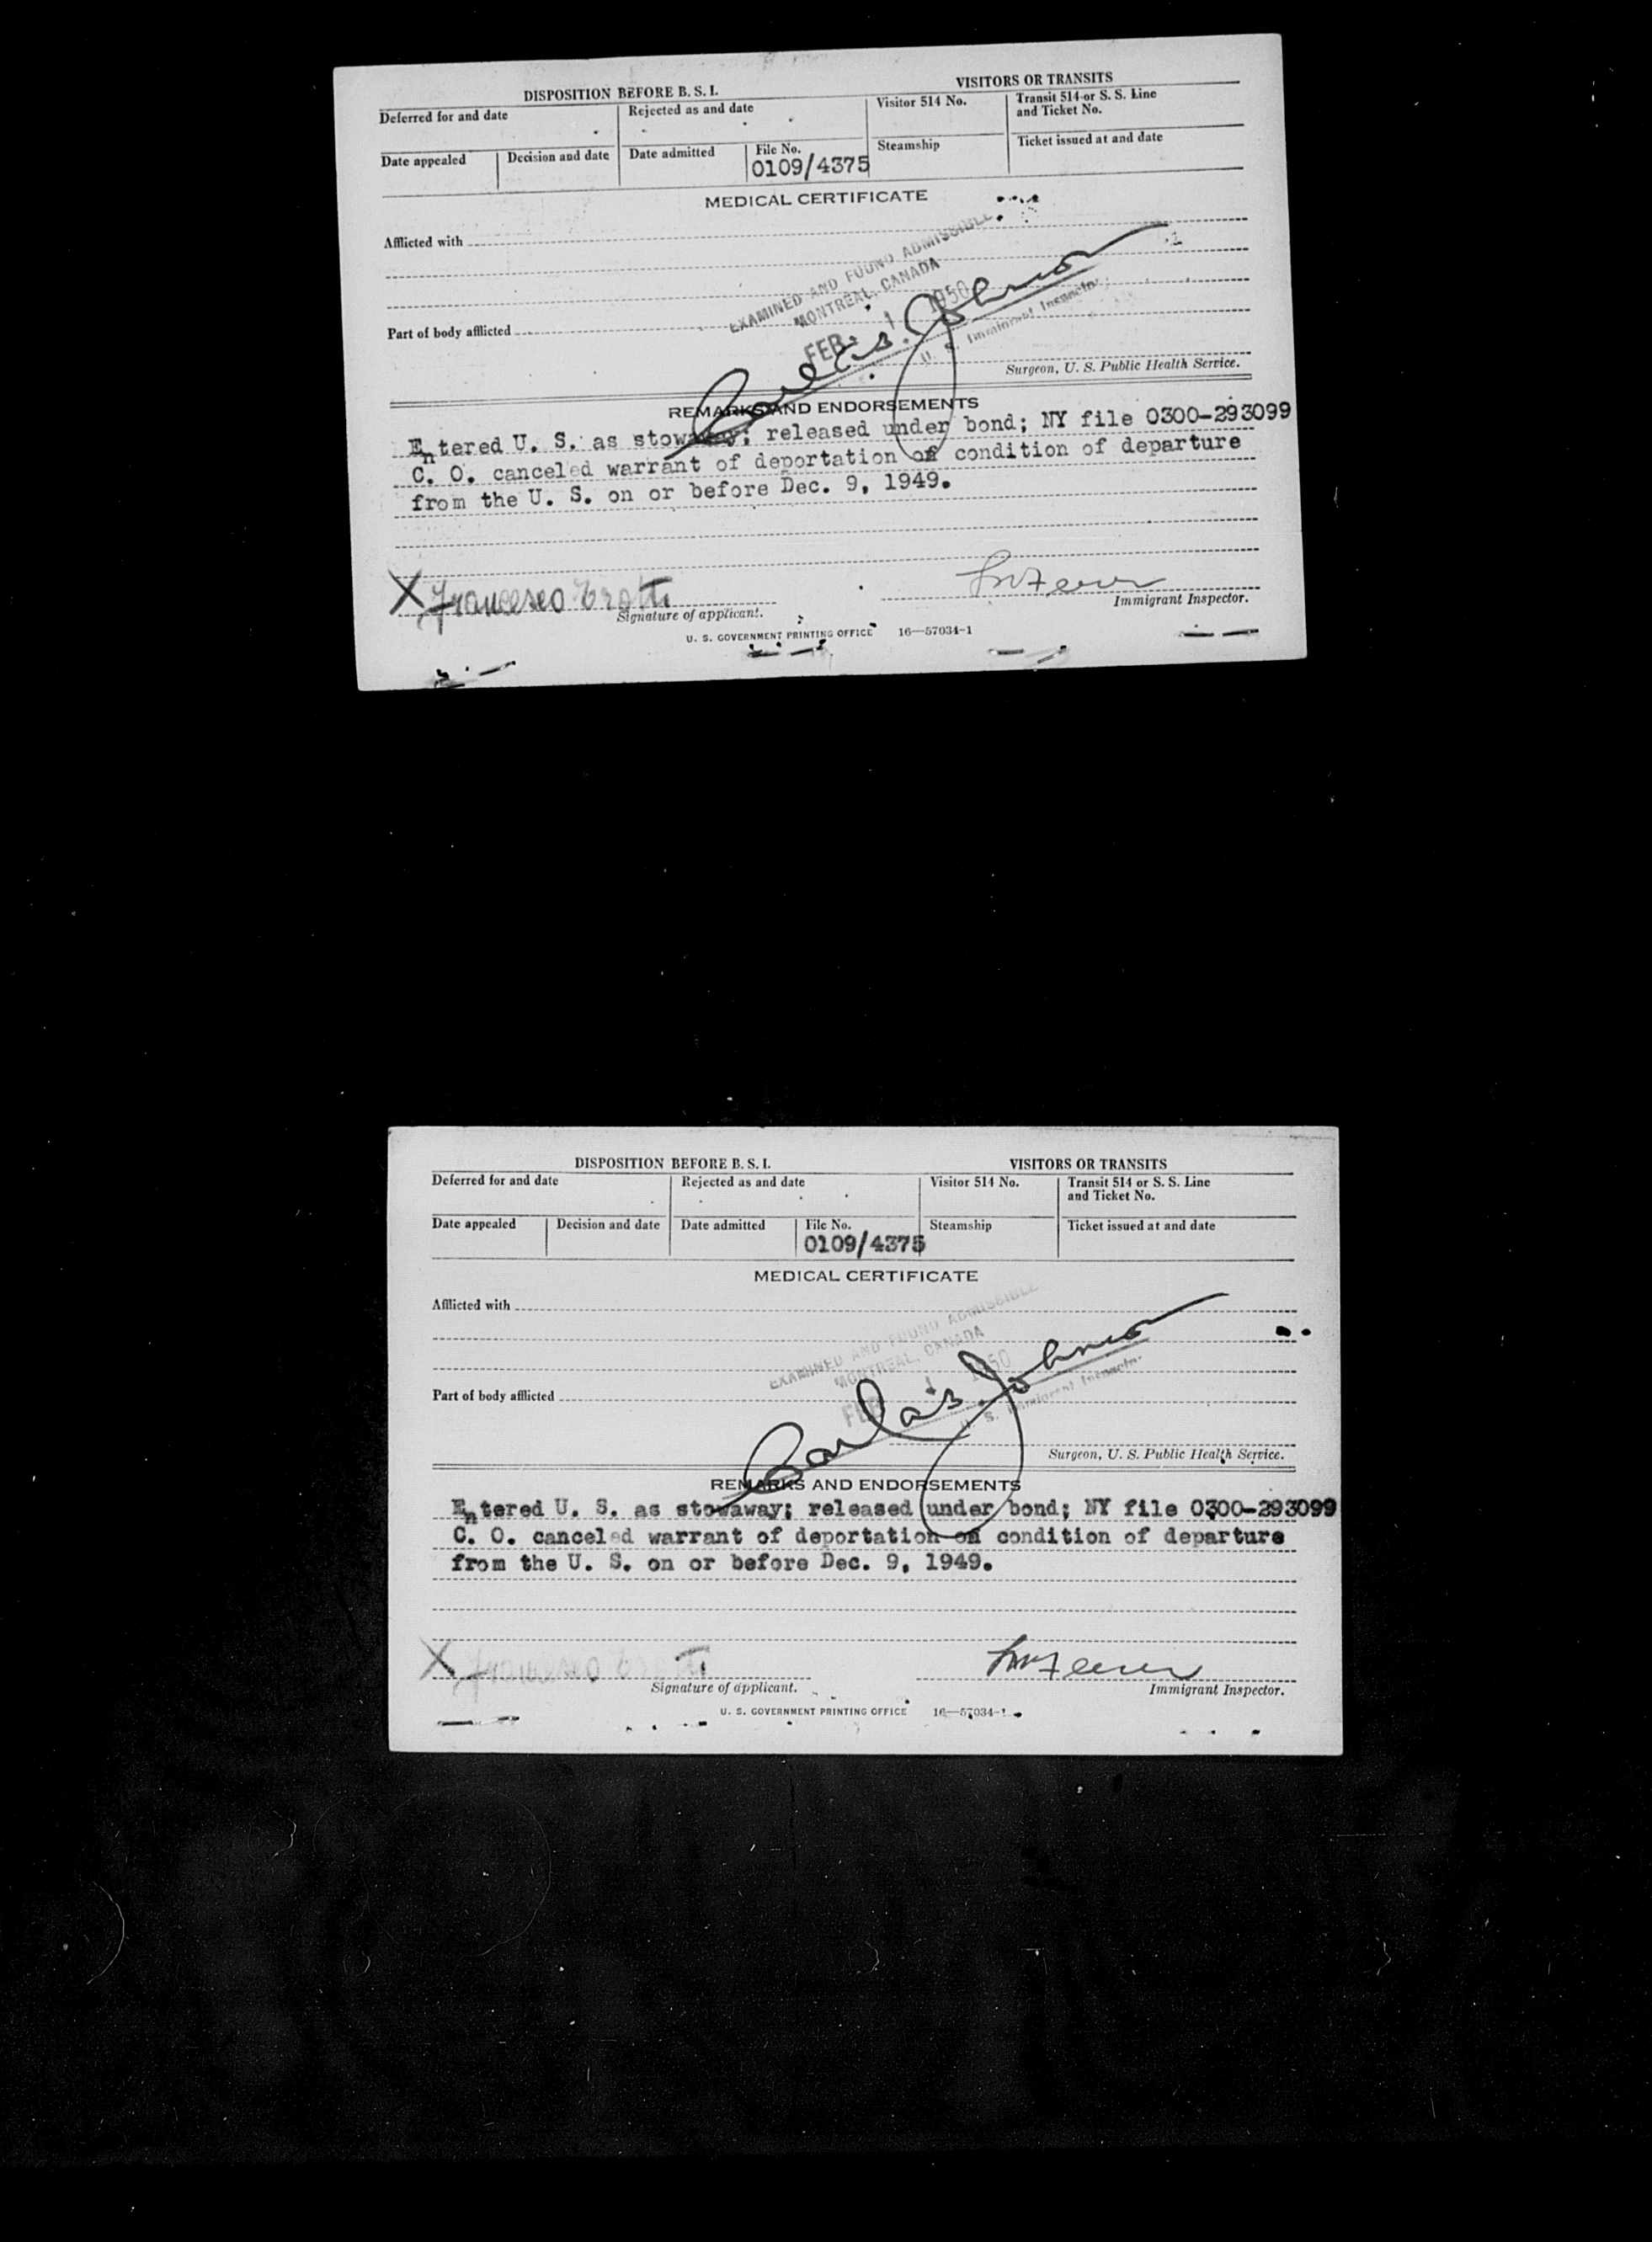 DISPOSITION BEFORE B. S. I.
VISITORS OR TRANSITS
Deferred for and date
Rejected as and date
Visitor 514 No.
Transit 514 or S. S. Line
and Ticket No.
Date appealed
Decision and date
Date admitted
File No.
0109/4375
Steamship
Ticket issued at and date
MEDICAL CERTIFICATE
Afflicted with
EXAMINED AND FOUND ADMISSIBLE
MONTREAL, CANADA
FEB 1 1950
Johnson
U. S. Immigrant Inspector
Part of body afflicted
Surgeon, U. S. Public Health Service.
REMARKS AND ENDORSEMENTS
Entered U. S. as stowaway; released under bond; NY file 0300-293099
C. O. canceled warrant of deportation on condition of departure
from the U. S. on or before Dec. 9, 1949.
X Francesco
Signature of applicant.
Immigrant Inspector.
U. S. GOVERNMENT PRINTING OFFICE 16—57034-1
DISPOSITION BEFORE B. S. I.
VISITORS OR TRANSITS
Deferred for and date
Rejected as and date
Visitor 514 No.
Transit 514 or S. S. Line
and Ticket No.
Date appealed
Decision and date
Date admitted
File No.
0109/4375
Steamship
Ticket issued at and date
MEDICAL CERTIFICATE
Afflicted with
EXAMINED AND FOUND ADMISSIBLE
MONTREAL, CANADA
FEB 1 1950
Johnson
U. S. Immigrant Inspector
Part of body afflicted
Surgeon, U. S. Public Health Service.
REMARKS AND ENDORSEMENTS
Entered U. S. as stowaway; released under bond; NY file 0300-293099
C. O. canceled warrant of deportation on condition of departure
from the U. S. on or before Dec. 9, 1949.
X Francesco
Signature of applicant.
Immigrant Inspector.
U. S. GOVERNMENT PRINTING OFFICE 16—57034-1